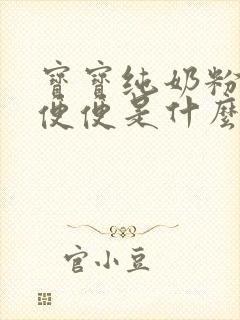 寶寶纯奶粉
便便是什麼
官小豆